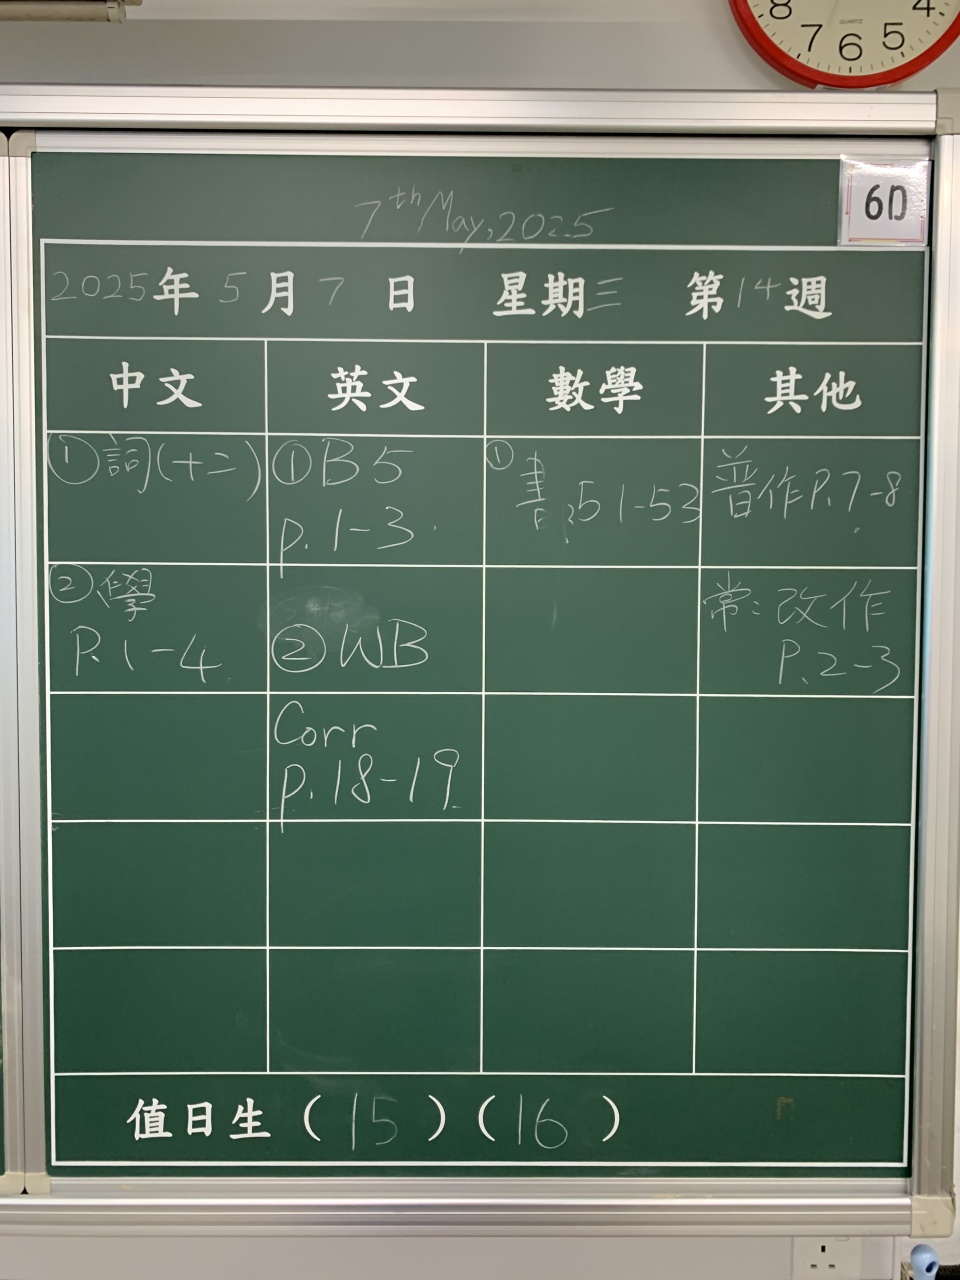 8 4
7 6 5
QUARTZ
6D
7th May, 2025
2025年 5月 7日 星期三 第14週
中文 英文 數學 其他
①詞(十二)
①B5
p.1-3
①書p.51-53
普作P.7-8
②學
P.1-4
②WB
常:改作
P.2-3
Corr
p.18-19
值日生(15)(16)